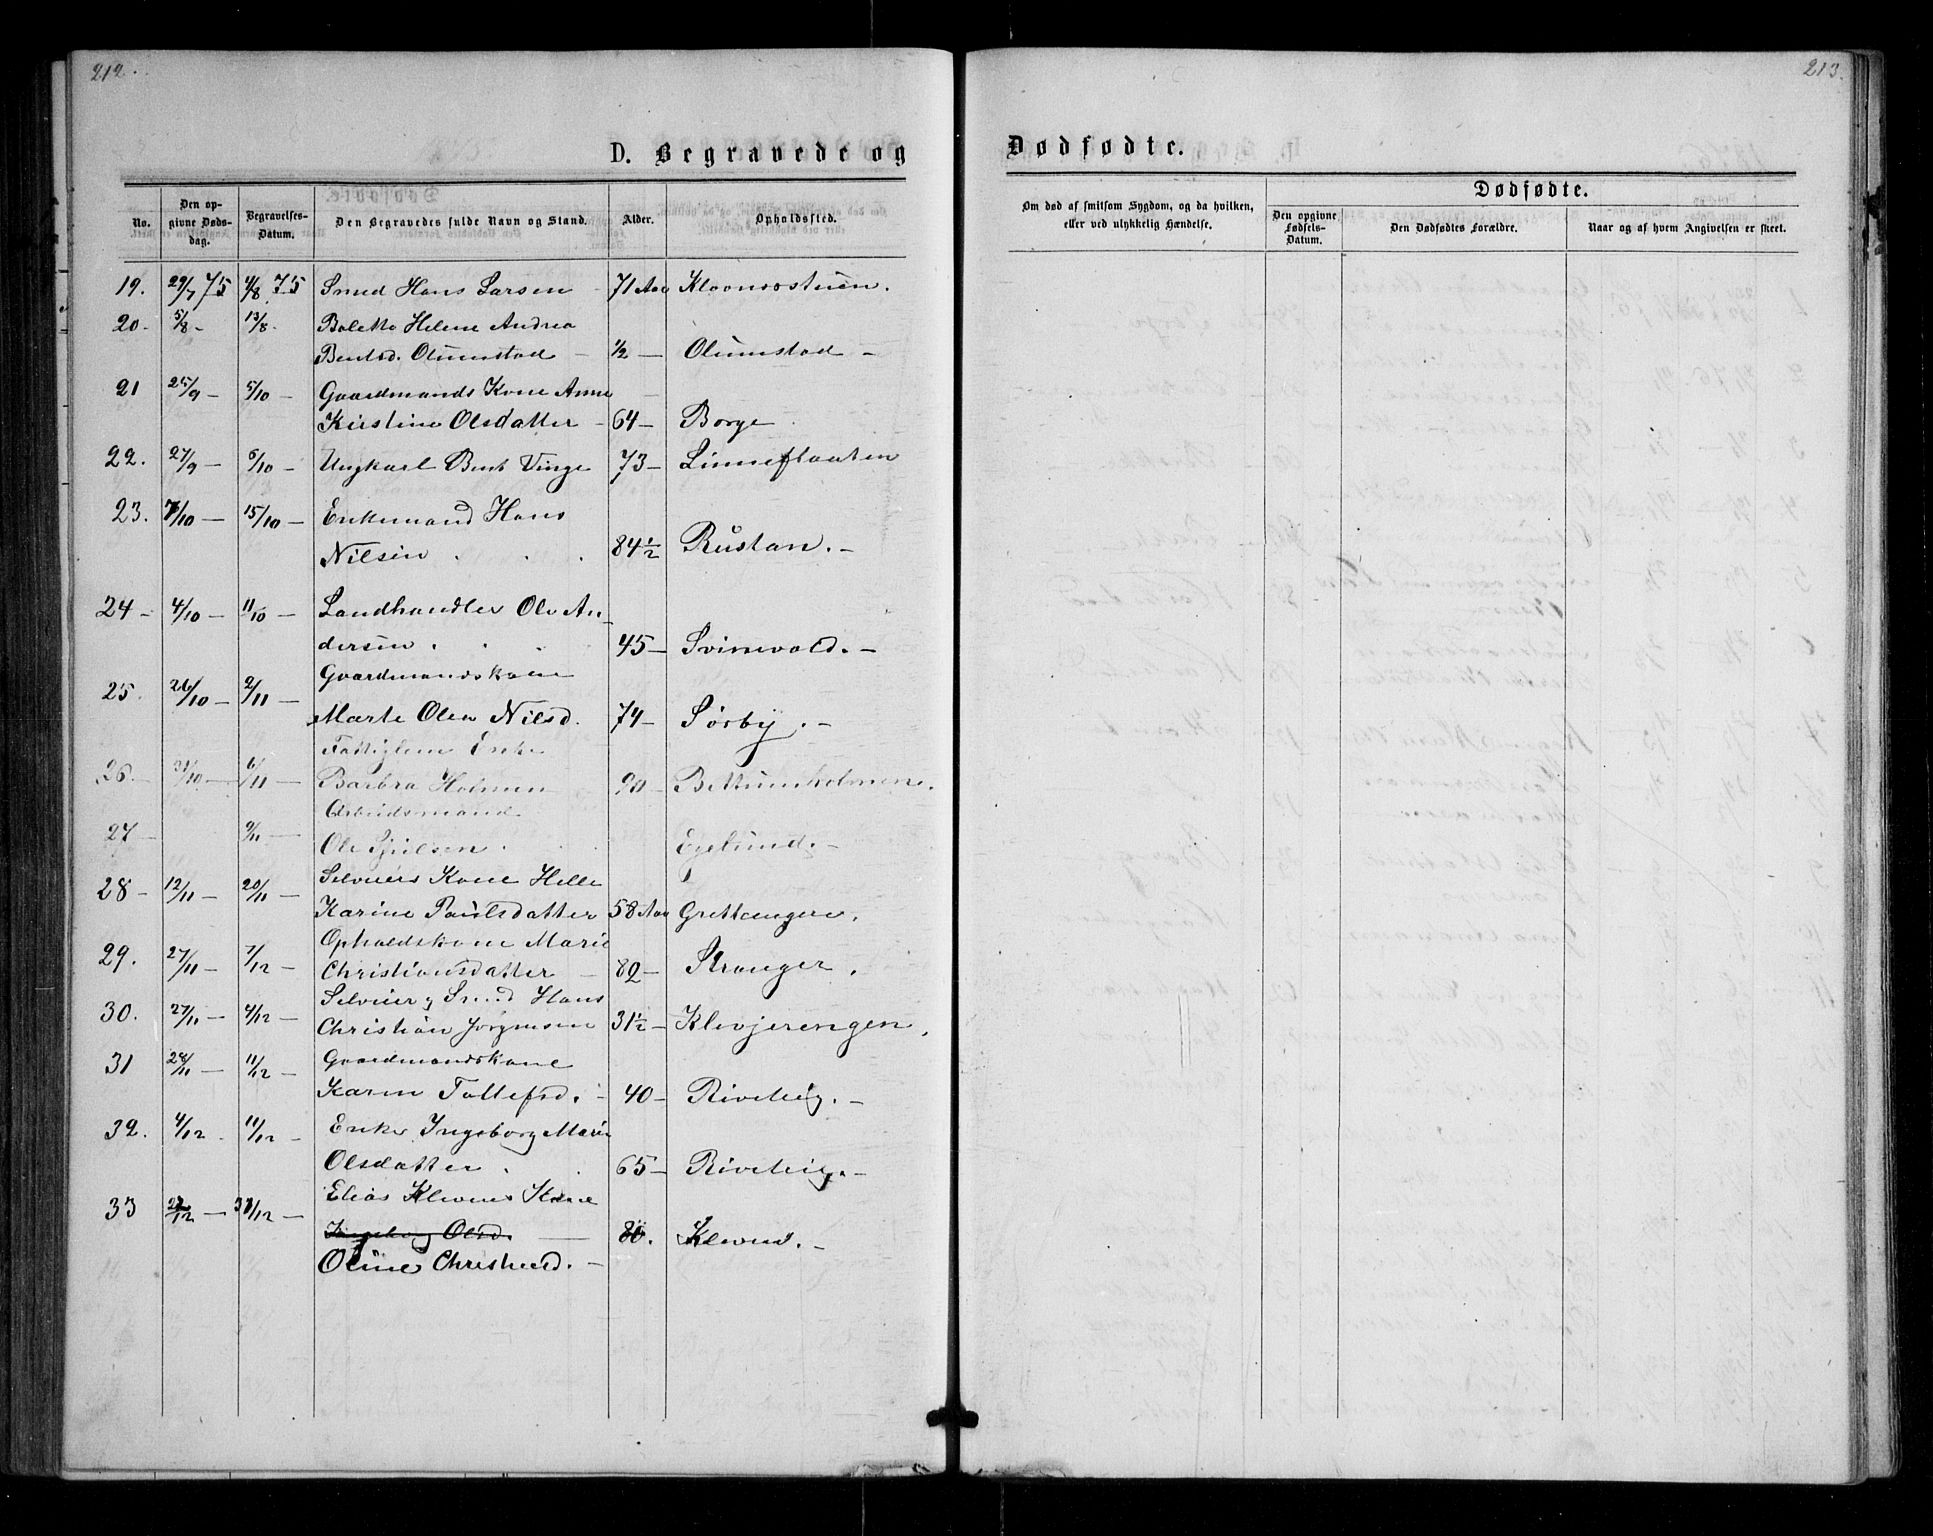 212.
213.
D. Begravede og
Dødfødte.
No.
Den op-
givne Døds-
dag.
Begravelses-
Datum.
Den Begravedes fulde Navn og Stand.
Alder.
Opholdssted.
Om død af smitsom Sygdom, og da hvilken,
eller ved ulykkelig Hændelse.
Dødfødte.
Den opgivne
Fødsels-
Datum.
Den Dødfødtes Forældre.
Naar og af hvem Angivelsen er skeet.
19. 29/7 75 4/8 75 Smed Hans Larsen 71 Aar
20 - 5/8 - 13/8 - Bolette Helene Andrea
Bentsd. Olumstad - 1/2 - Olumstad -
21 25/9 - 5/10 - Gaardmands Kone Anne
Kirstine Olsdatter - 64 - Borge
22. 27/9 - 6/10 - Ungkarl Bent Vinge 73 - Linneflaaten
23. 7/10 - 15/10 - Enkemand Hans
Nilsen . . . 84 1/2 Rustan. -
24 - 4/10 - 11/10 - Landhandler Ole An-
dersen . . . 45 - Svinevold. -
25. 26/10 - 2/11 - Gaardmandskone
Marte Olea Nilsd. 74 - Sørby. -
26. 31/10 - 6/11 - Fattiglem Enke
Barbra Holmen 90 - Bettumholmene.
27 - 9/11 - Arbeidsmand
Ole . Egelund. -
28 - 12/11 - 20/11 - Selveiers Kone Helle
Karine Paulsdatter 58 Aar Grettengere.
29. 27/11 - 7/12 - Opholdskone Marie
Christiansdatter - 82 - Stranger.
30. 27/11 - 4/12 - Selveier g Smed Hans
Christian Jørgensen 31 1/2 - Klevjerengen.
31 28/11 - 11/12 - Gaardmandskone
Karen Tollefsd. - 40 - Riveteig. -
32. 4/12 . 11/12 - Enke Ingeborg Marie
Olsdatter . . 65 - Riveteig. -
33 22/12 - 31/12 - Elias Klevens Kone
Ingeborg Olsd. - 80. Kleven. -
Oline Christensd. -